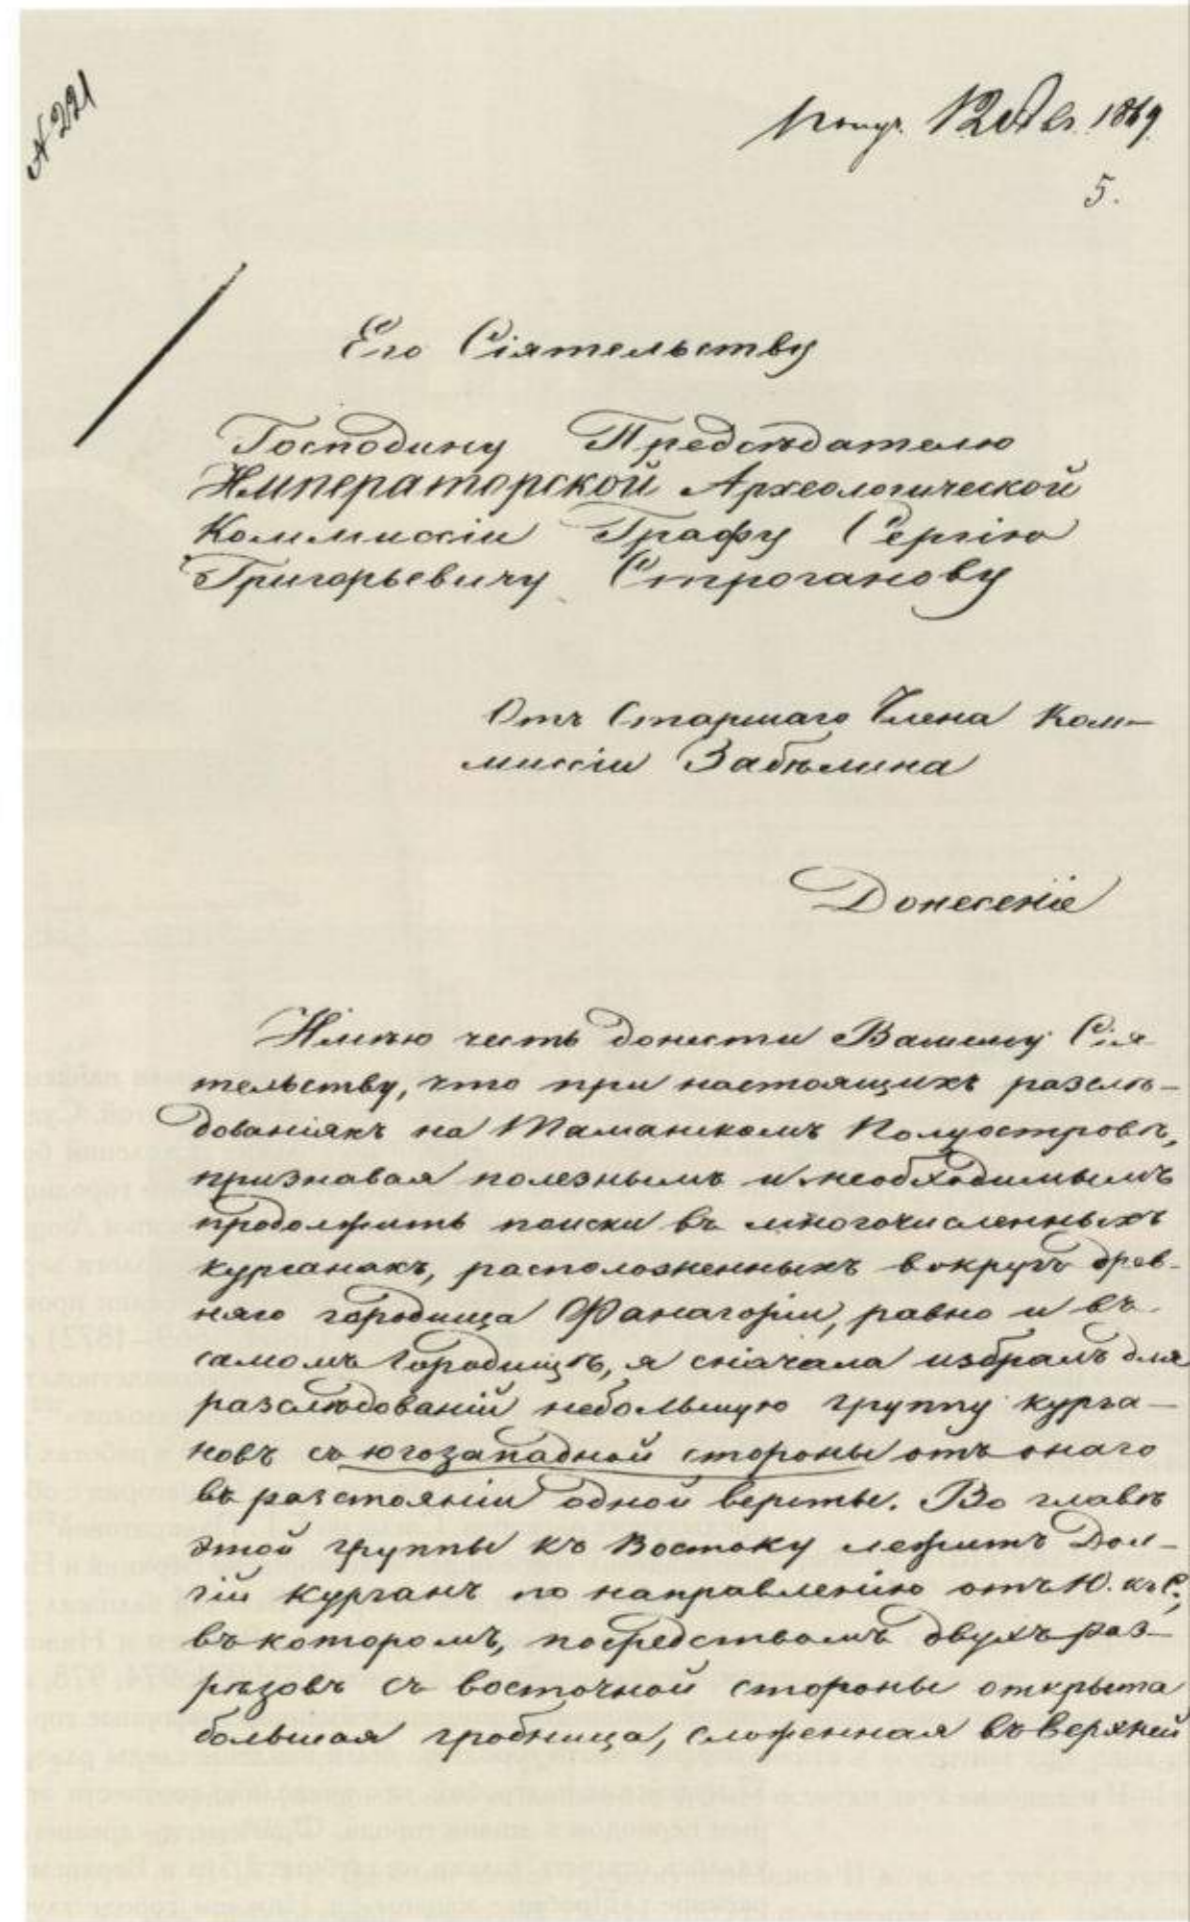 N 221
Получ. 12 Авг. 1869
5.
Его Сіятельству
Господину Предсѣдателю
Императорской Археологической
Коммиссіи Графу Сергію
Григорьевичу Строганову
Отъ Старшаго Члена Ком-
миссіи Забѣлина
Донесеніе
Имѣю честь донести Вашему Сія-
тельству, что при настоящихъ разслѣ-
дованіяхъ на Таманскомъ Полуостровѣ,
признавая полезнымъ и необходимымъ
продолжить поиски въ многочисленныхъ
курганахъ, расположенныхъ вокругъ древ-
няго городища Фанагоріи, равно и въ
самомъ городищѣ, я сначала избралъ для
разслѣдованій небольшую группу курга-
новъ съ югозападной стороны отъ онаго
въ разстояніи одной версты. Во главѣ
этой группы къ Востоку лежитъ Дол-
гій курганъ по направленію отъ Ю. къ С.,
въ которомъ, посредствомъ двухъ раз-
рѣзовъ съ восточной стороны открыта
большая гробница, сложенная въ верхней